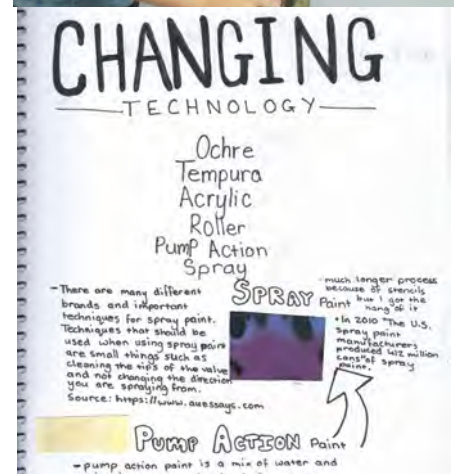 CHANGING
TECHNOLOGY
Ochre
Tempura
Acrylic
Roller
Pump Action
Spray
SPRAY Paint
- There are many different
brands and important
techniques for spray paint.
Techniques that should be
used when using spray paint
are small things such as
cleaning the tips of the valve
and not changing the direction
you are spraying from.
Source: https://www.auessays.com
- much longer process
because of stencils
but I got the
hang of it
• In 2010 "The U.S.
spray paint
manufacturers
produced 412 million
cans" of spray
paint.
PUMP ACTION Paint
- pump action paint is a mix of water and